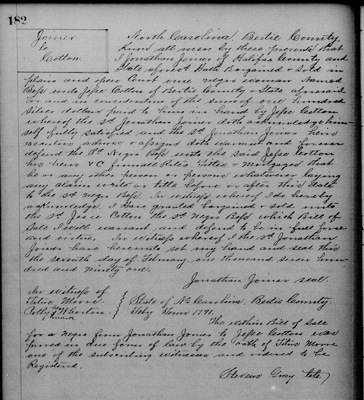 182
Joiner
to
Cotton
North Carolina, Bertie County.
Know all men by these presents that
I Jonathan Joiner of Halifax County and
State afores'd Hath Bargained & Sold in
plain and open Court one negro woman named
Bess unto Jesse Cotton of Bertie County & State aforesaid
for and in consideration of the sum of one hundred
silver dollars paid to him in hand by Jesse Cotton
whereof the Sd Jonathan Joiner doth acknowledge him-
self fully satisfied and the Sd Jonathan Joiner Heirs
executors admr or assigns doth warrant and forever
defend the Sd negro Bess unto the said Jesse Cotton
his heirs &C from
he or any other person or persons whatsoever laying
any claim will or title before or after this date
to the sd negro Bess. In witness whereof I do hereby
acknowledge I have granted bargained & sold unto
the Sd Jesse Cotton the Sd negro Bess which Bill of
Sale I will warrant and defend to be in full force
and virtue. In witness whereof I the Sd Jonathan
Joiner have hereunto set my hand and seal this
the seventh day of February one thousand seven hun-
dred and ninety one.
Jonathan Joiner seal.
In witness of
Titus Moore
State of No Carolina, Bertie County
Feby Term 1791.
The within Bill of Sale
for a negro from Jonathan Joiner to Jesse Cotton was
proved in due form of law by the oath of Titus Moore
one of the subscribing witnesses and ordered to be
Registered.
Stevens Gray